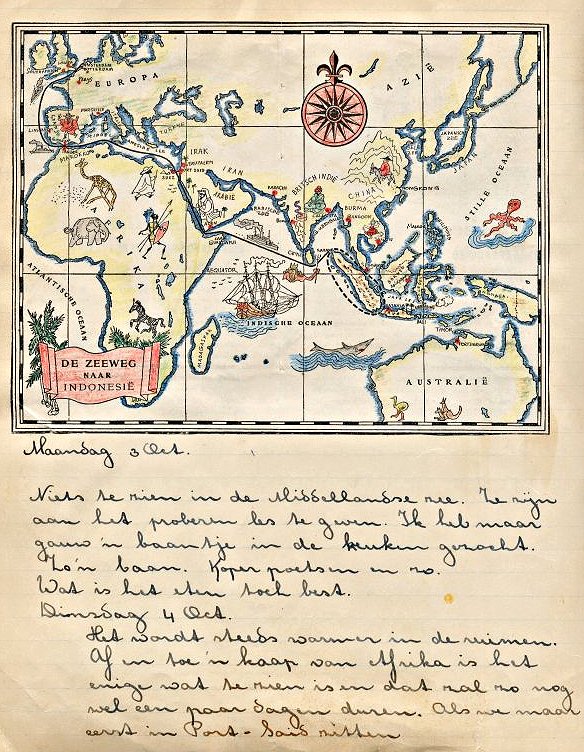 AMSTERDAM
ROTTERDAM
EUROPA
AZIË
PARIJS
MARSEILLE
TURKIJE
IRAK
IRAN
ARABIË
KARACHI
BRITSCH INDIË
CHINA
BURMA
RANGOON
HONGKONG
JAPANSCHE ZEE
JAPAN
STILLE OCEAAN
MAROKKO
AFRIKA
ATLANTISCHE OCEAAN
AEQUATOR
INDISCHE OCEAAN
MADAGASKAR
TIMOR
AUSTRALIË
DE ZEEWEG
NAAR
INDONESIË
Maandag 3 Oct.
Niets te zien in de Middellandse zee. Ze zijn
aan het proberen les te geven. Ik heb maar
gauw 'n baantje in de keuken gezocht.
Zo'n baan. Koper poetsen en zo.
Wat is het eten toch best.
Dinsdag 4 Oct.
Het wordt steeds warmer in de ruimen.
Af en toe 'n kaap van Afrika is het
enige wat te zien is en dat zal zo nog
wel een paar dagen duren. Als we maar
eerst in Port-Said zitten